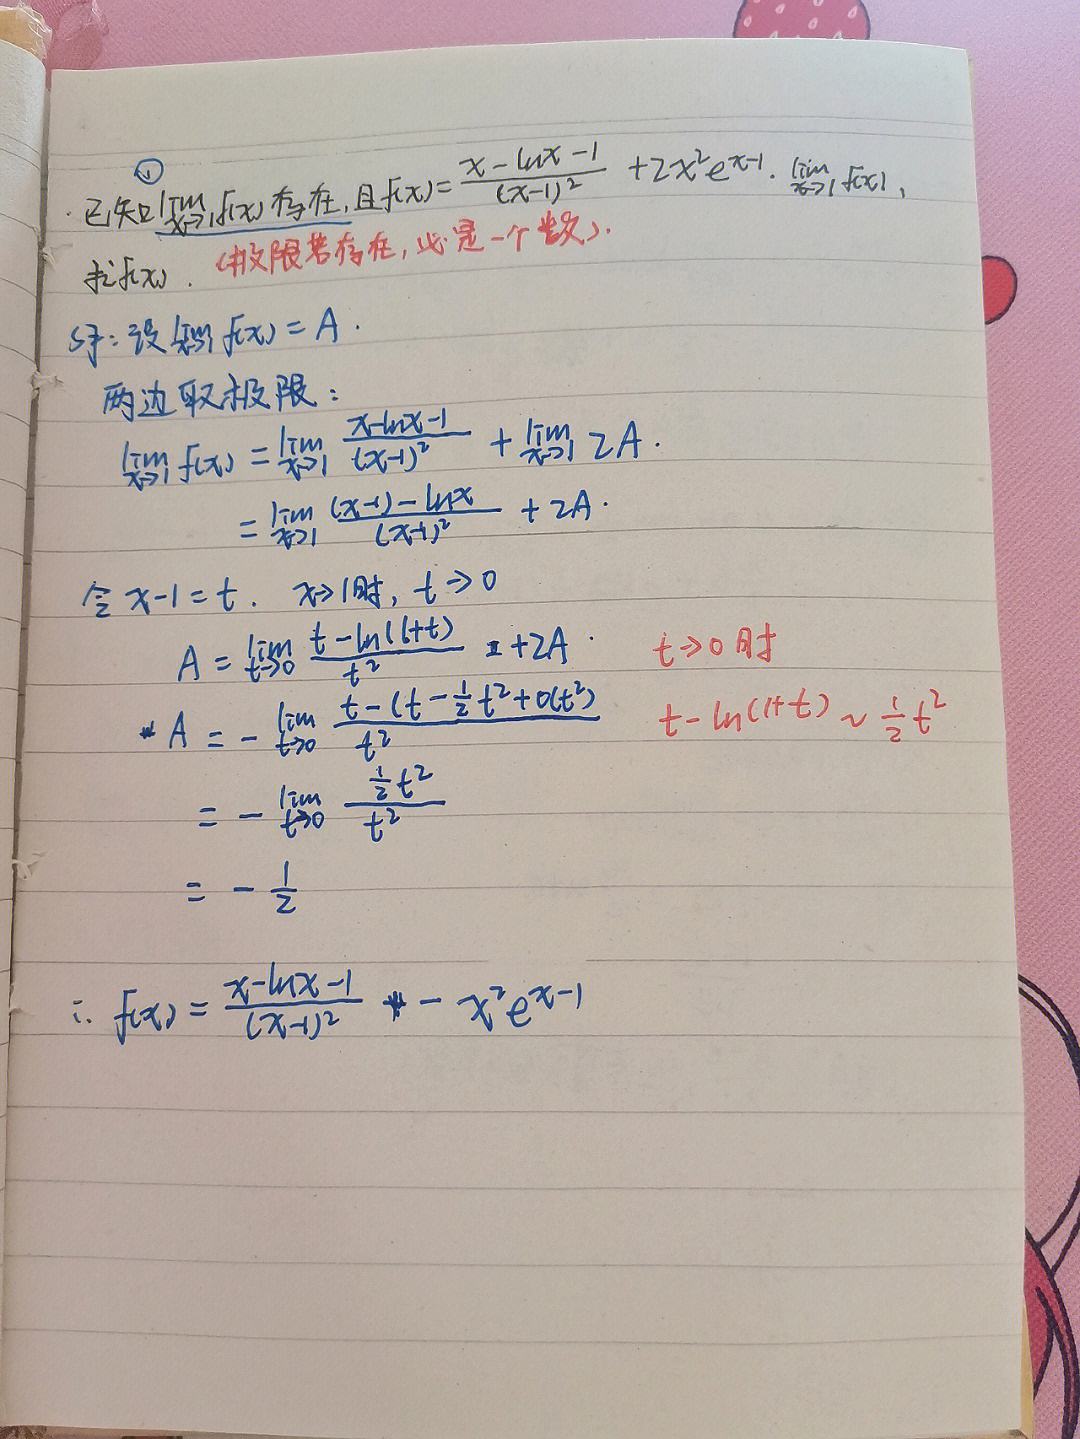 ①
已知lim x→1 f(x)存在,且f(x)= (x-lnx-1)/(x-1)² +2x²e^(x-1)· lim x→1 f(x),
求f(x). (极限若存在,必是一个数).
解:设lim x→1 f(x)=A.
两边取极限:
lim x→1 f(x) = lim x→1 (x-lnx-1)/(x-1)² + lim x→1 2A.
= lim x→1 ((x-1)-lnx)/(x-1)² + 2A.
令 x-1=t. x→1时, t→0
A = lim t→0 (t-ln(1+t))/t² +2A. t→0时
A = - lim t→0 (t-(t-½t²+o(t²))/t² t-ln(1+t) ~ ½t²
= - lim t→0 (½t²)/t²
= - ½
∴ f(x) = (x-lnx-1)/(x-1)² - x²e^(x-1)